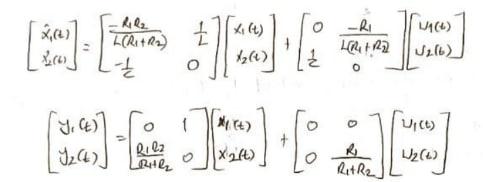 [ẋ1(t) ẋ2(t)] = [-R1R2/L(R1+R2) 1/L -1/C 0] [x1(t) x2(t)] + [0 -R1/L(R1+R2) 1/C 0] [u1(t) u2(t)]
[y1(t) y2(t)] = [0 1 R1R2/R1+R2 0] [x1(t) x2(t)] + [0 0 0 R1/R1+R2] [u1(t) u2(t)]